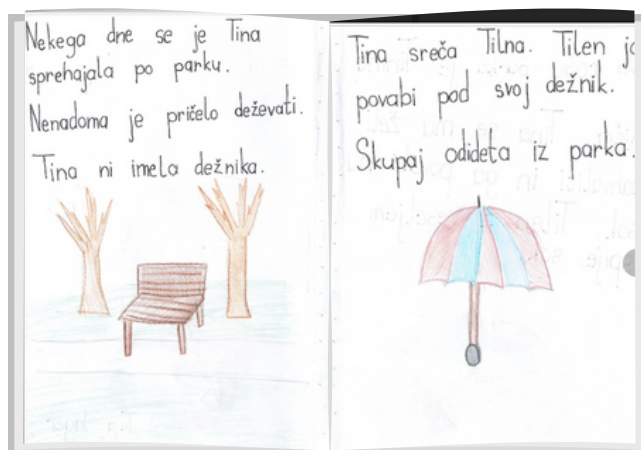 Nekega dne se je Tina
sprehajala po parku.
Nenadoma je pričelo deževati.
Tina ni imela dežnika.
Tina sreča Tilna. Tilen jo
povabi pod svoj dežnik.
Skupaj odideta iz parka.